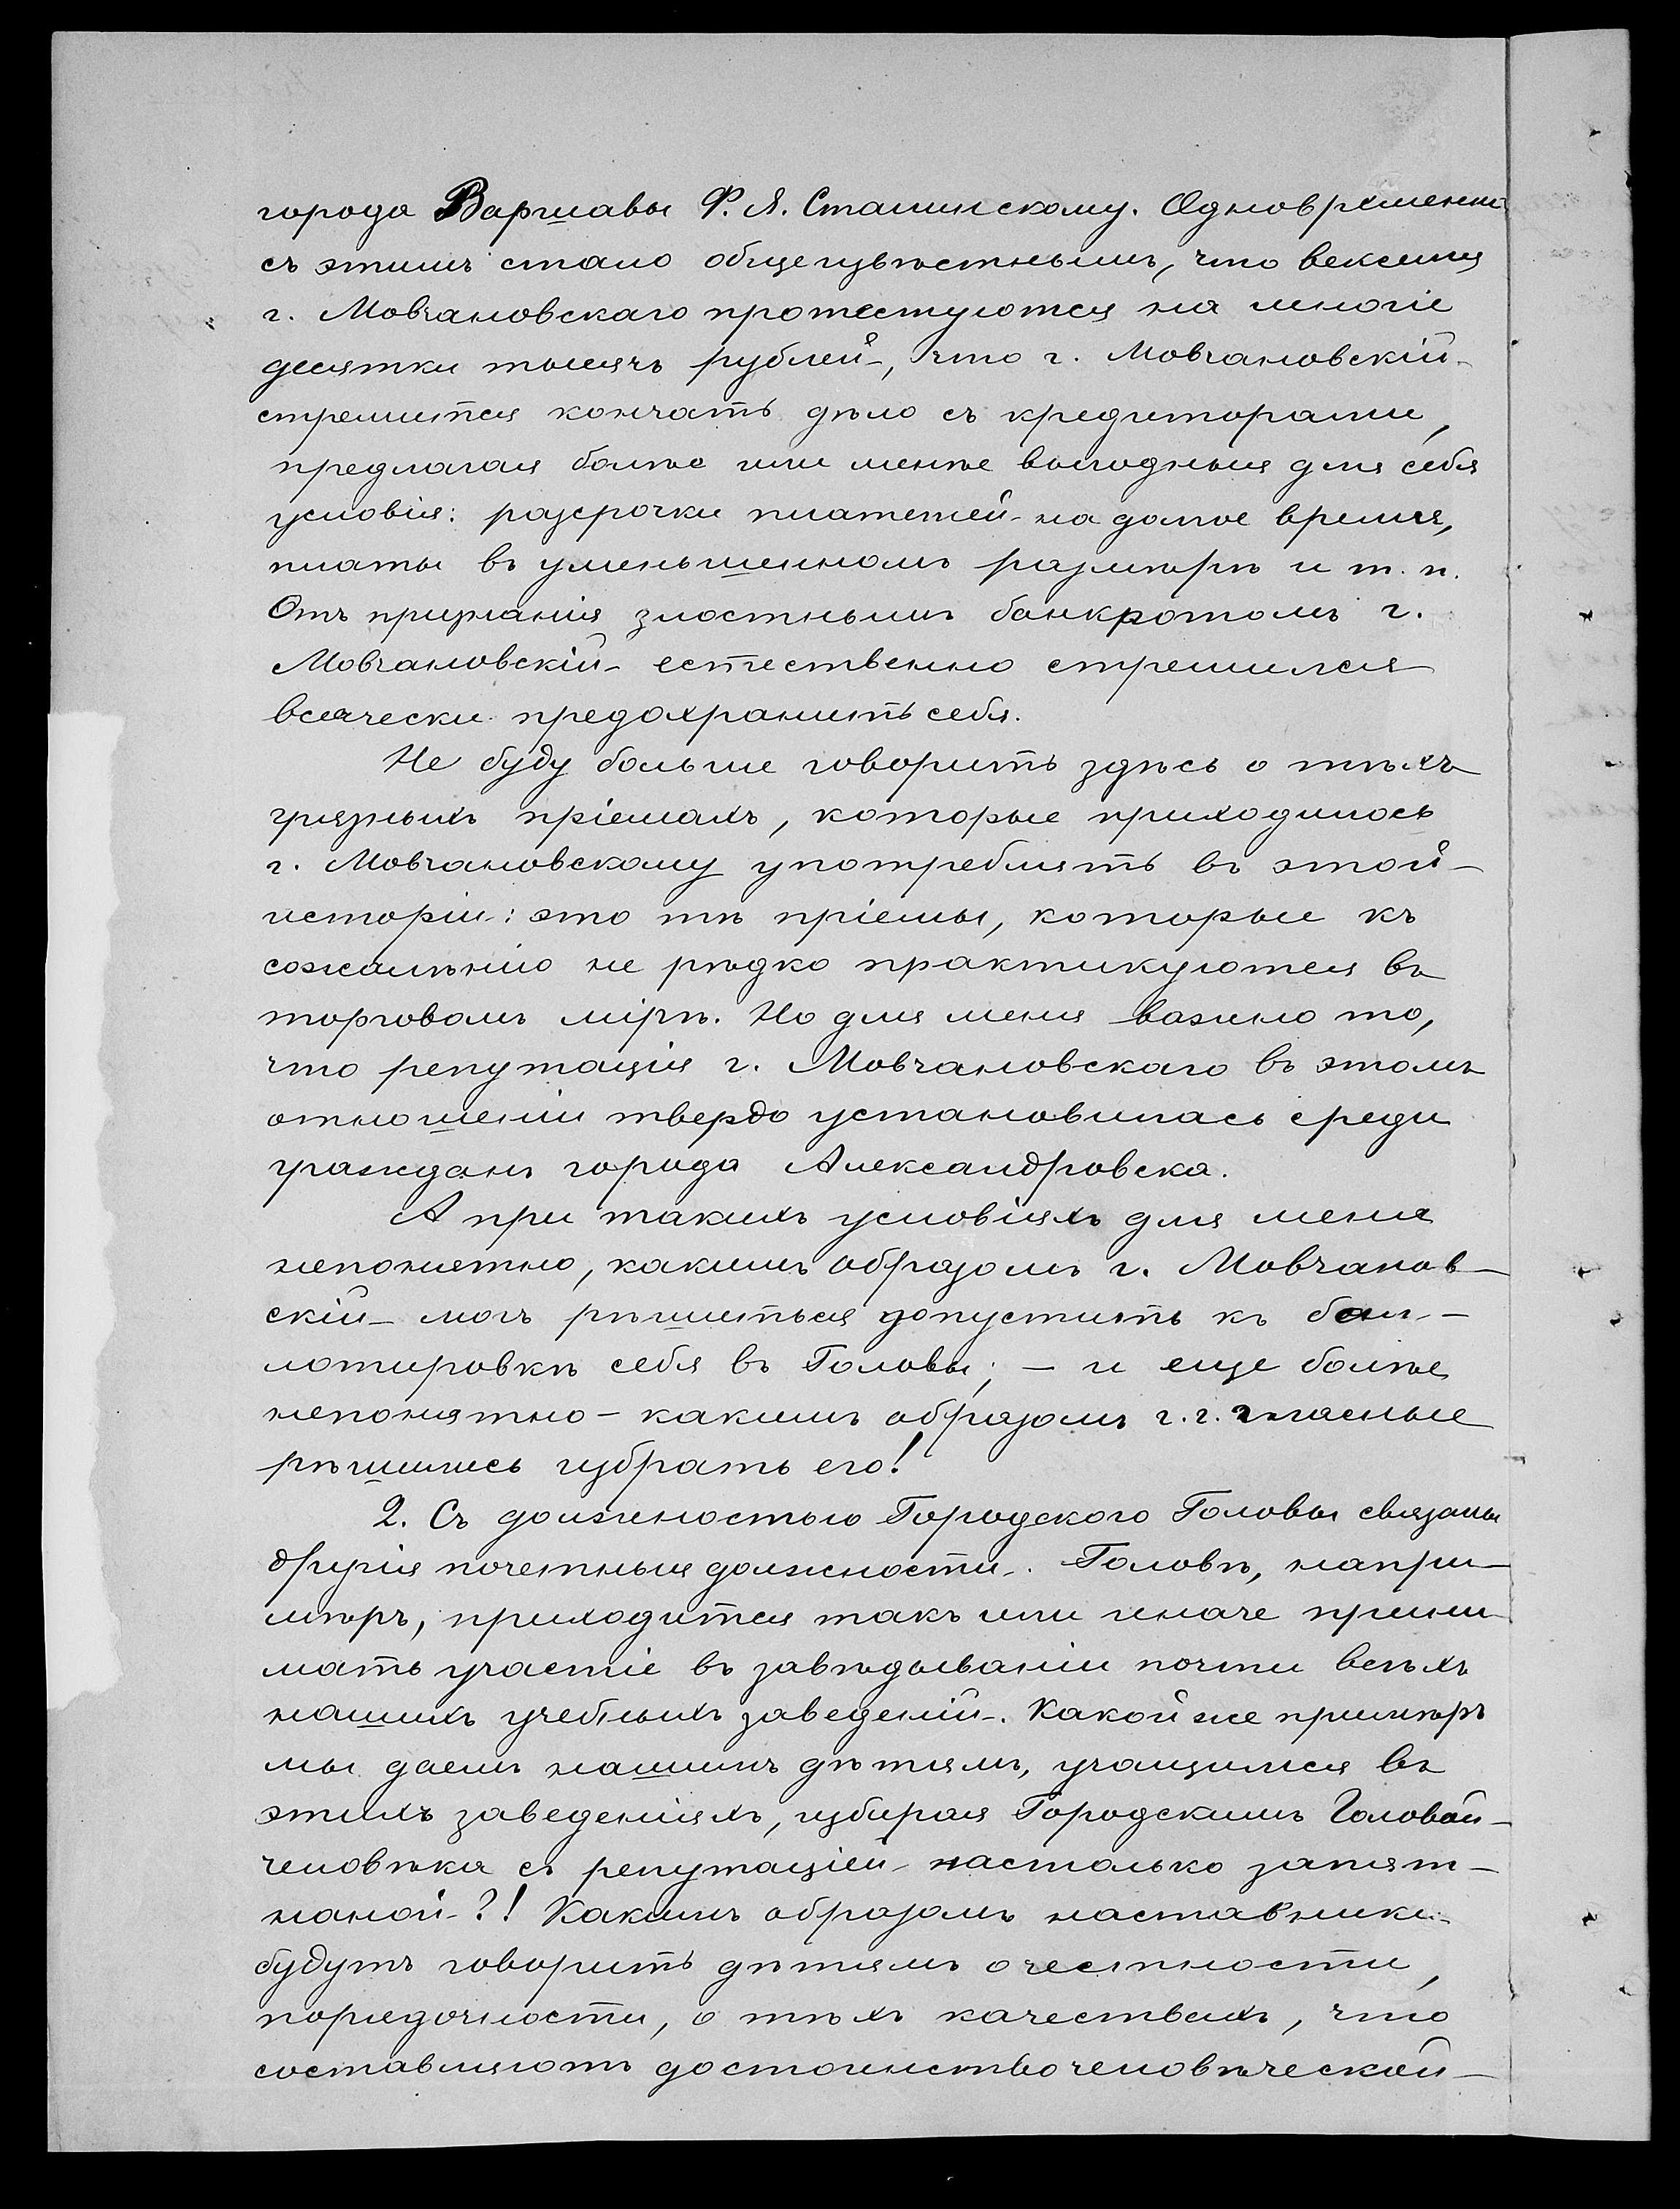 города Варшавы Ф. Я. Сташинскому. Одновременно
съ этимъ стало общеизвѣстнымъ, что векселя
г. Мовчановскаго протестуются на многіе
десятки тысячъ рублей, что г. Мовчановскій
стремится кончать дѣло съ кредиторами,
предлагая болѣе или менѣе выгодныя для себя
условія: разсрочки платежей на долгое время,
платы въ уменьшенномъ размѣрѣ и т. п.
Отъ признанія злостнымъ банкротомъ г.
Мовчановскій естественно стремился
всячески предохранить себя.
Не буду больше говорить здѣсь о тѣхъ
грязныхъ пріемахъ, которые приходилось
г. Мовчановскому употреблять въ этой
исторіи: это тѣ пріемы, которые къ
сожалѣнію не рѣдко практикуются въ
торговомъ мірѣ. Но для меня важно то,
что репутація г. Мовчановскаго въ этомъ
отношеніи твердо установилась среди
гражданъ города Александровска.
А при такихъ условіяхъ для меня
непонятно, какимъ образомъ г. Мовчанов-
скій могъ рѣшиться допустить къ бал-
лотировкѣ себя въ Головы; — и еще болѣе
непонятно — какимъ образомъ г.г. гласные
рѣшились избрать его!
2. Съ должностью Городского Головы связаны
другія почетныя должности. Головѣ, напри-
мѣръ, приходится такъ или иначе прини-
мать участіе въ завѣдываніи почти всѣхъ
нашихъ учебныхъ заведеній. Какой же примѣръ
мы даемъ нашимъ дѣтямъ, учащимся въ
этихъ заведеніяхъ, избирая Городскимъ Головой
человѣка съ репутаціей настолько запят-
наной?! Какимъ образомъ наставники
будутъ говорить дѣтямъ о честности,
порядочности, о тѣхъ качествахъ, что
составляютъ достоинство человѣческой